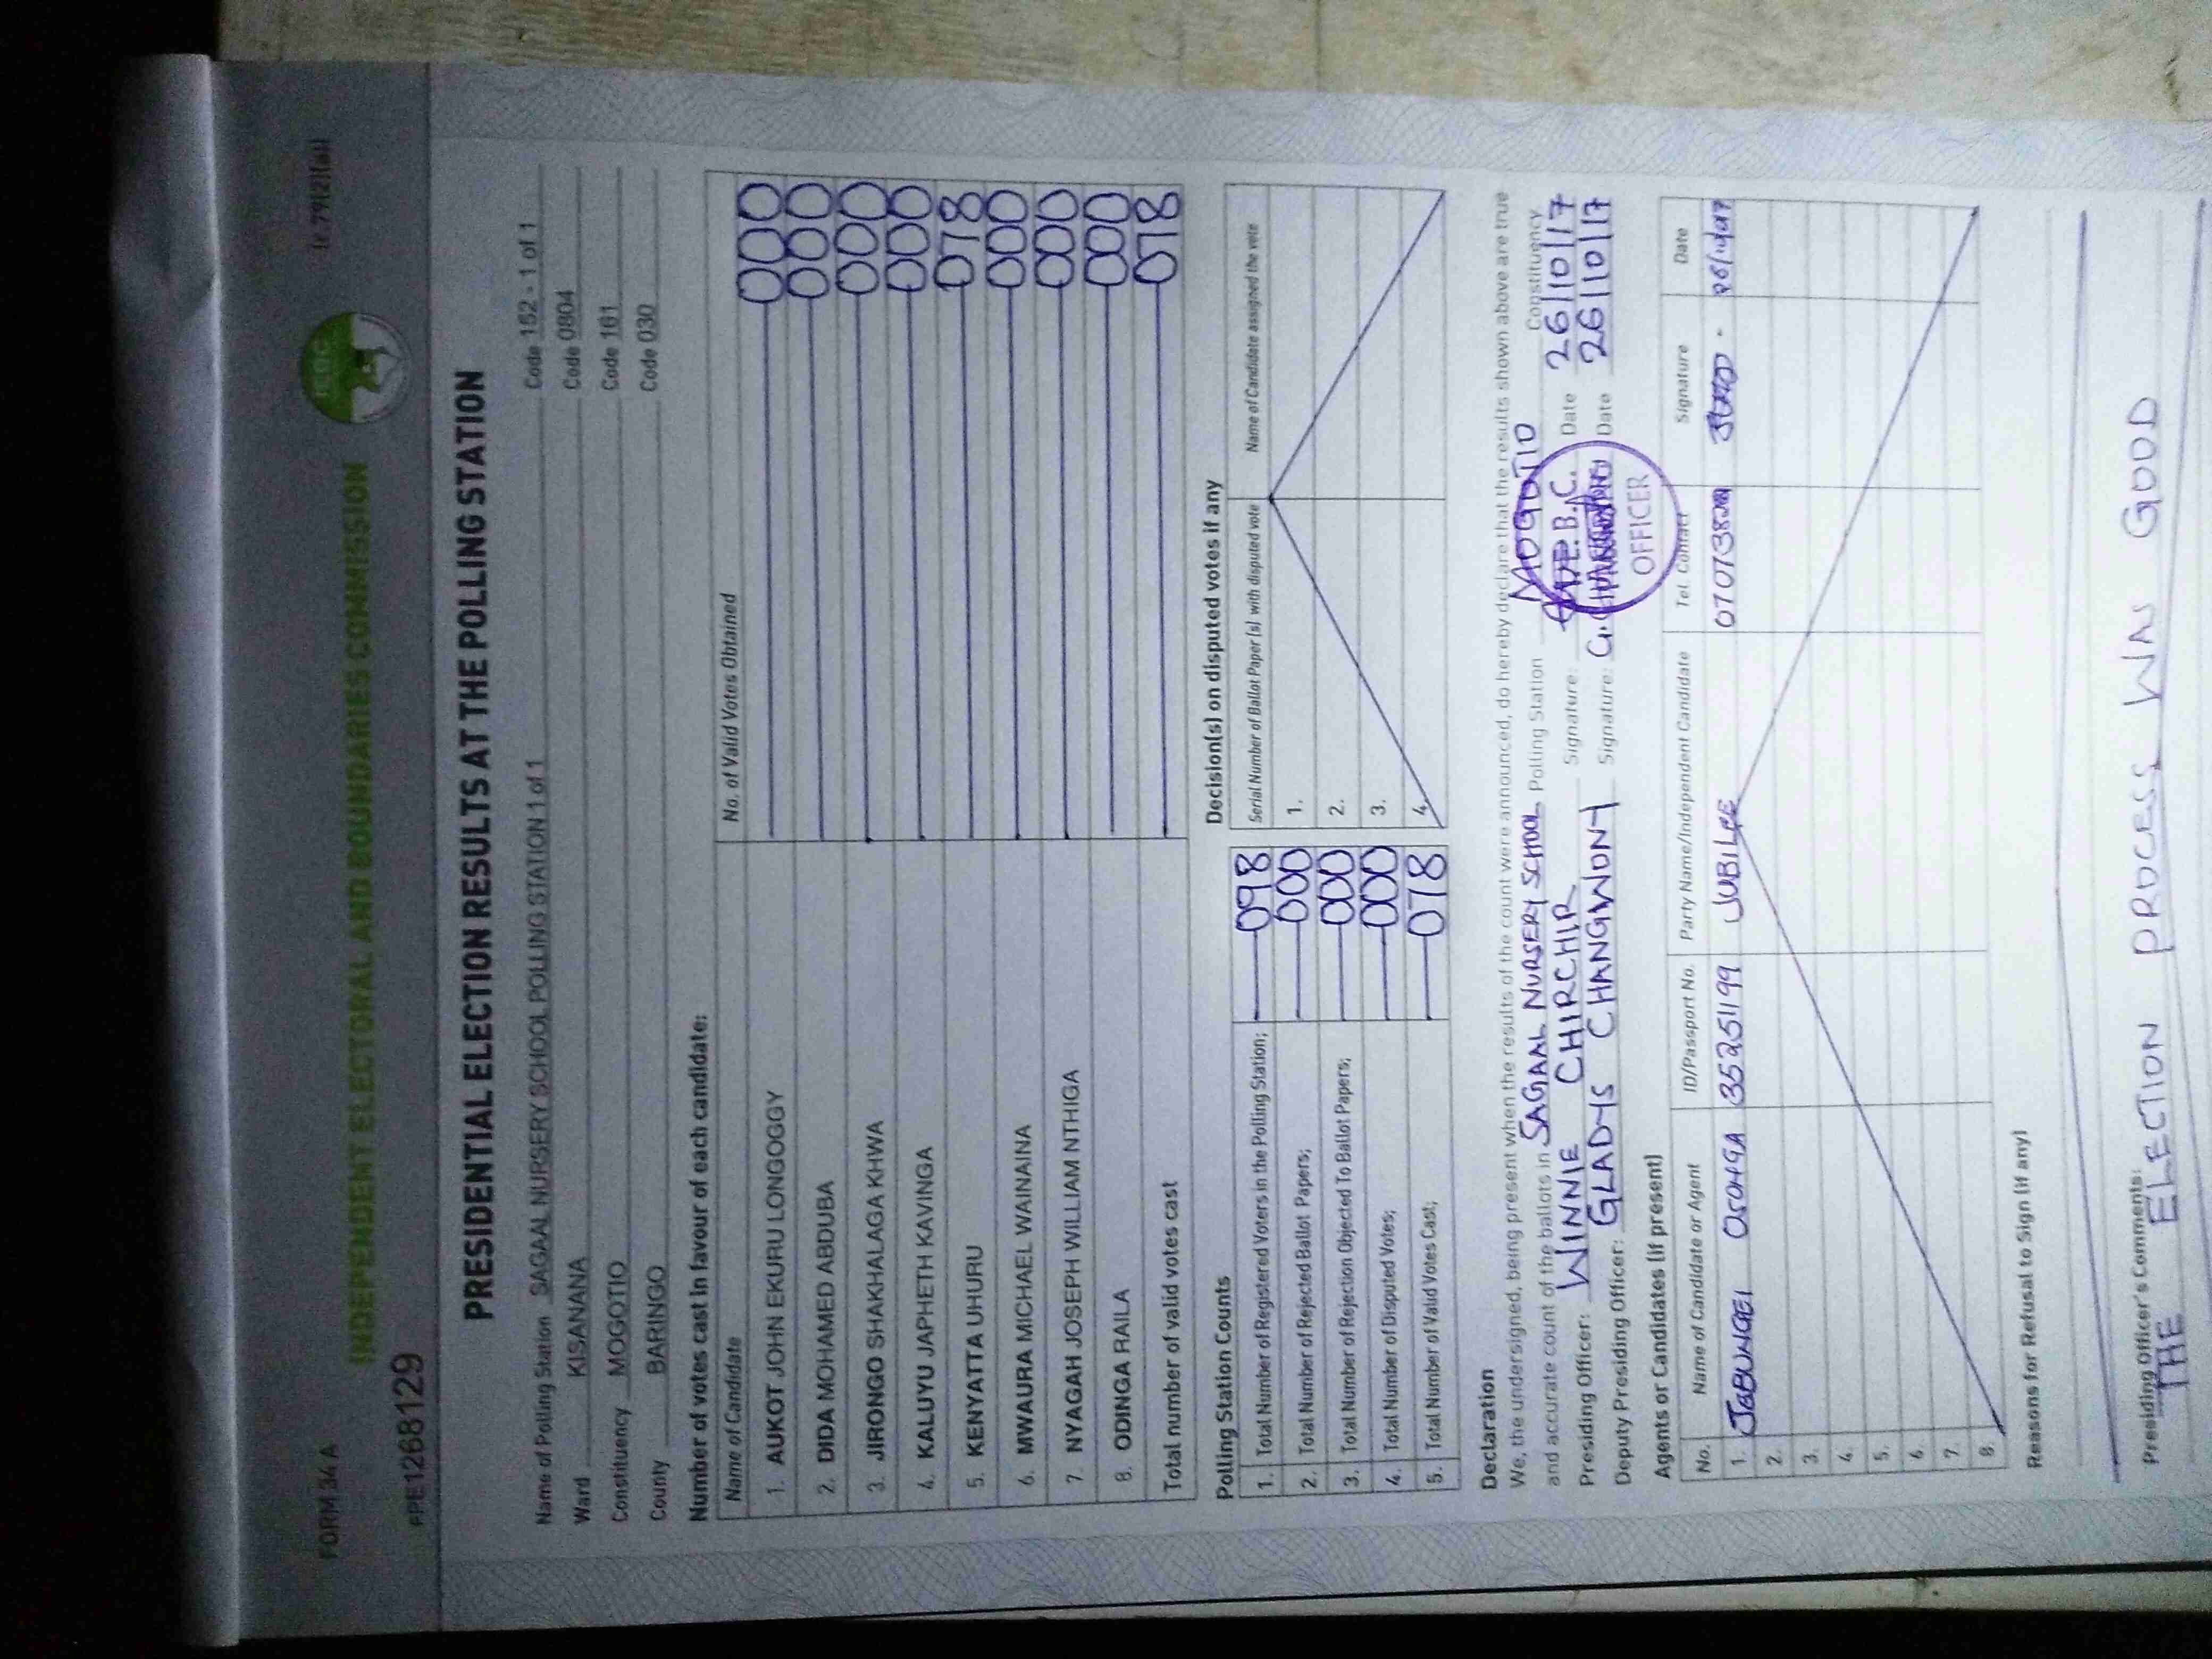 FORM 34 A
(r.79(2)(a))
INDEPENDENT ELECTORAL AND BOUNDARIES COMMISSION
PPE1268129
PRESIDENTIAL ELECTION RESULTS AT THE POLLING STATION
Name of Polling Station SAGAAL NURSERY SCHOOL POLLING STATION 1 of 1 Code 152 - 1 of 1
Ward KISANANA Code 0804
Constituency MOGOTIO Code 161
County BARINGO Code 030
Number of votes cast in favour of each candidate:
Name of Candidate No. of Valid Votes Obtained
1. AUKOT JOHN EKURU LONGOGGY 000
2. DIDA MOHAMED ABDUBA 000
3. JIRONGO SHAKHALAGA KHWA 000
4. KALUYU JAPHETH KAVINGA 000
5. KENYATTA UHURU 078
6. MWAURA MICHAEL WAINAINA 000
7. NYAGAH JOSEPH WILLIAM NTHIGA 000
8. ODINGA RAILA 000
Total number of valid votes cast 078
Polling Station Counts
1. Total Number of Registered Voters in the Polling Station; 098
2. Total Number of Rejected Ballot Papers; 000
3. Total Number of Rejection Objected To Ballot Papers; 000
4. Total Number of Disputed Votes; 000
5. Total Number of Valid Votes Cast; 078
Decision(s) on disputed votes if any
Serial Number of Ballot Paper (s) with disputed vote Name of Candidate assigned the vote
1.
2.
3.
4.
Declaration
We, the undersigned, being present when the results of the count were announced, do hereby declare that the results shown above are true
and accurate count of the ballots in SAGAAL NURSERY SCHOOL Polling Station MOGOTIO Constituency
Presiding Officer: WINNIE CHIRCHIR Signature: Date 26/10/17
Deputy Presiding Officer: GLADYS CHANGWONY Signature: Date 26/10/17
OFFICER
Agents or Candidates (if present)
No. Name of Candidate or Agent ID/Passport No. Party Name/Independent Candidate Tel. Contact Signature Date
1. JEBUNGEI 35251199 JUBILEE
2.
3.
4.
5.
6.
7.
8.
Reasons for Refusal to Sign (if any)
Presiding Officer's Comments:
THE ELECTION PROCESS WAS GOOD